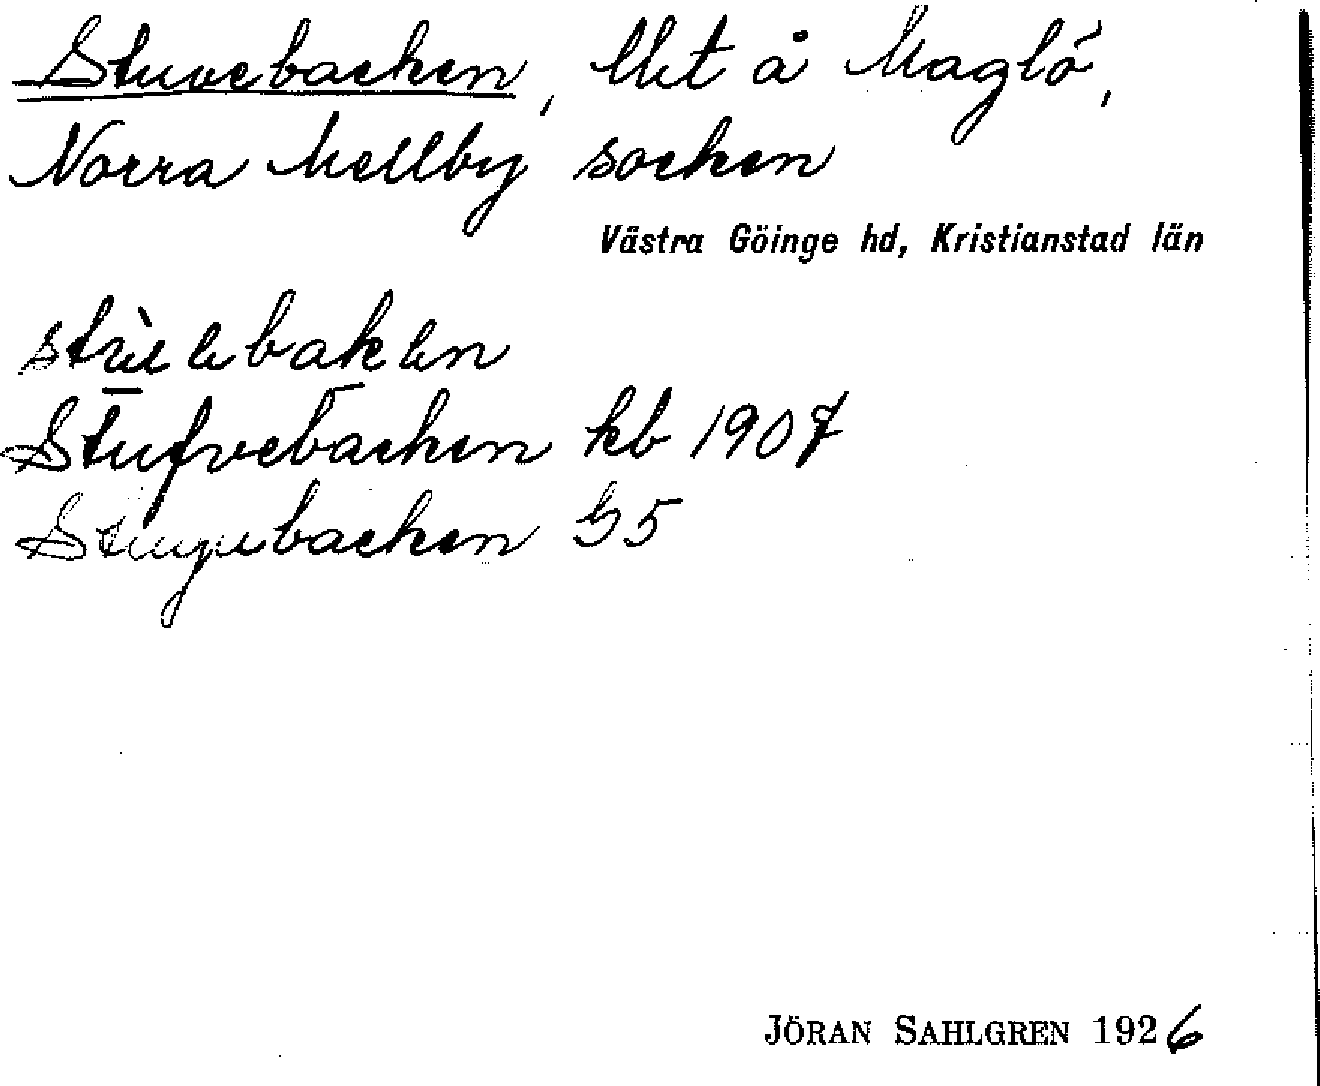 Stuvebacken, lht å Maglö,
Norra Mellby socken
Västra Göinge hd, Kristianstad län
Stufvebacken kb 1907
backen G5
JÖRAN SAHLGREN 1926